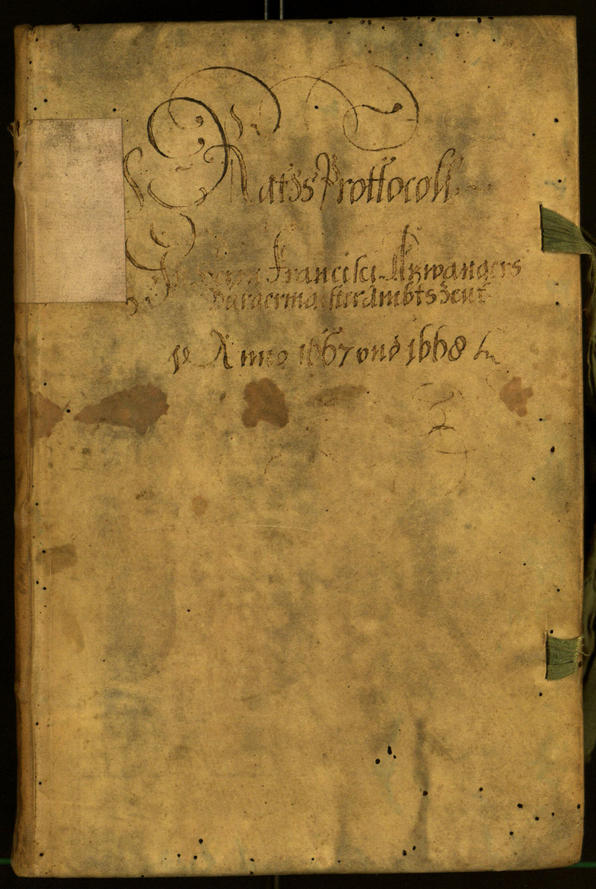 Raths Prottocoll
Francisci Azwangers
Burgermaisterambts Zeit
Anno 1667 und 1668